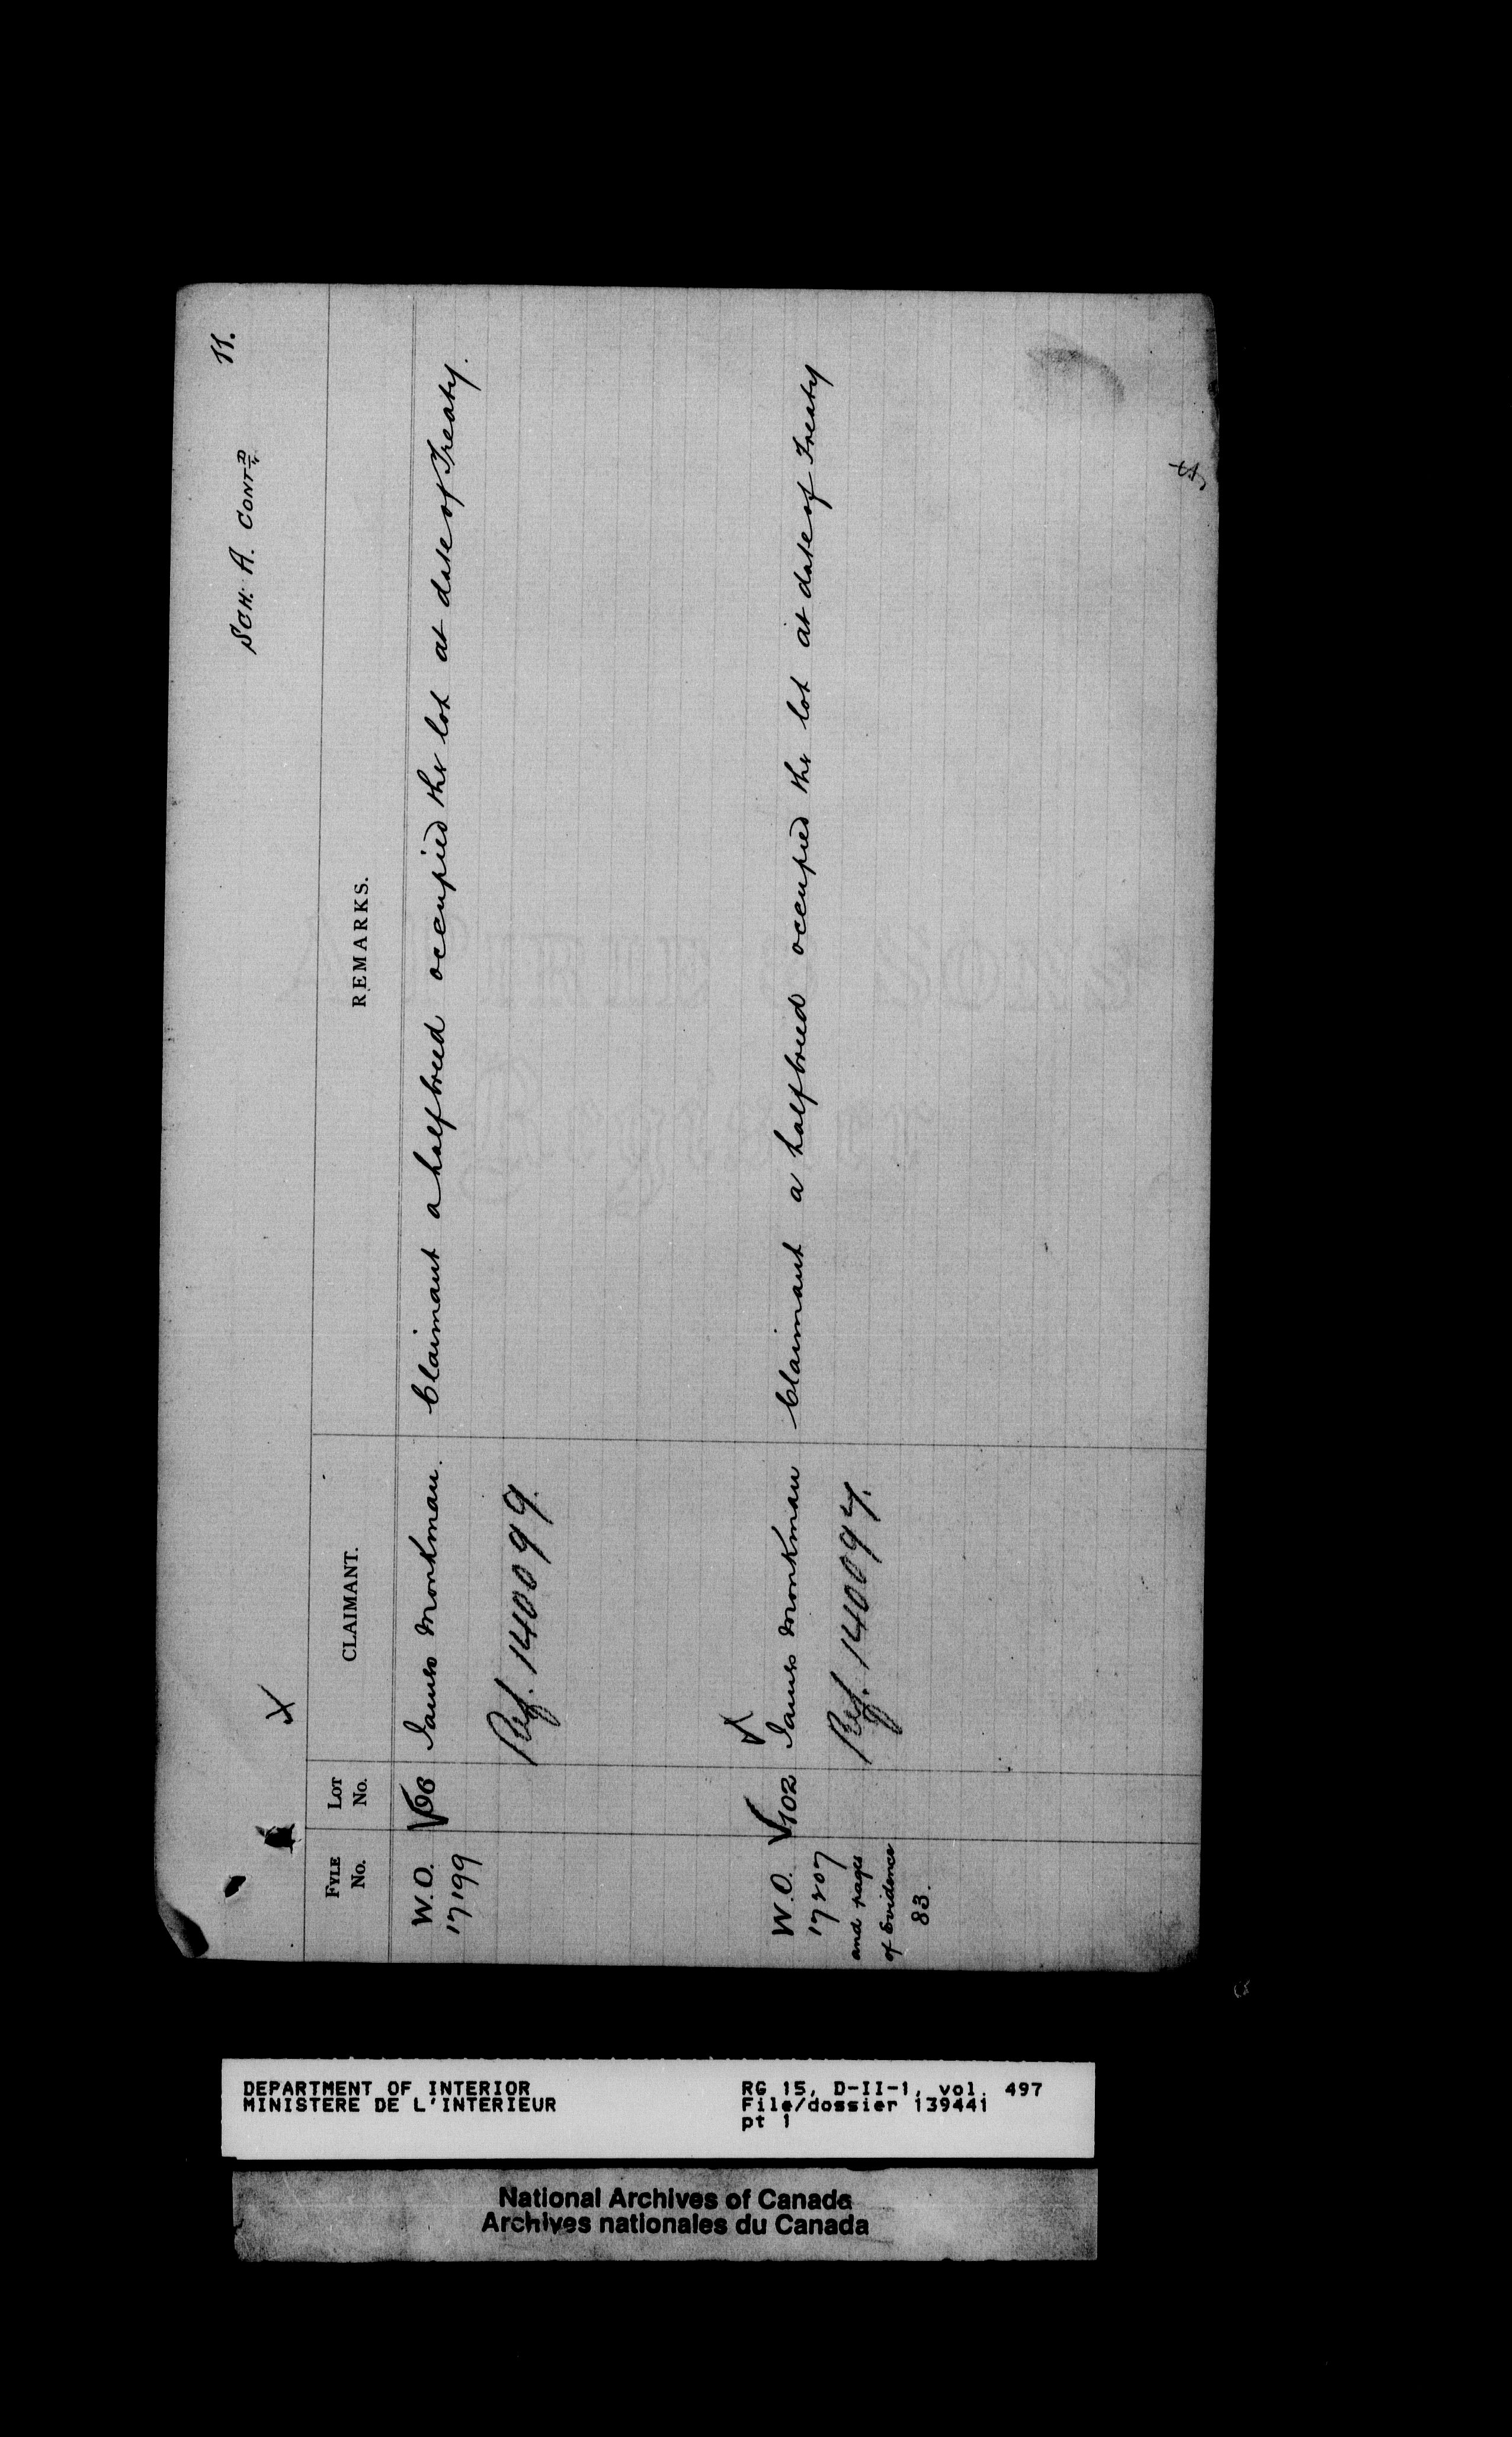 11.
SCH. A. CONT'D
FYLE No.
LOT No.
CLAIMANT.
REMARKS.
W.O. 17199
96
James Monkman.
Claimant a halfbreed occupied the lot at date of Treaty.
Ref. 140099.
W.O. 17207
and pages
of Evidence
83.
102
James Monkman
Claimant a halfbreed occupied the lot at date of Treaty
Ref. 140094.
DEPARTMENT OF INTERIOR
MINISTERE DE L'INTERIEUR
RG 15, D-II-1, vol. 497
File/dossier 139441
pt 1
National Archives of Canada
Archives nationales du Canada